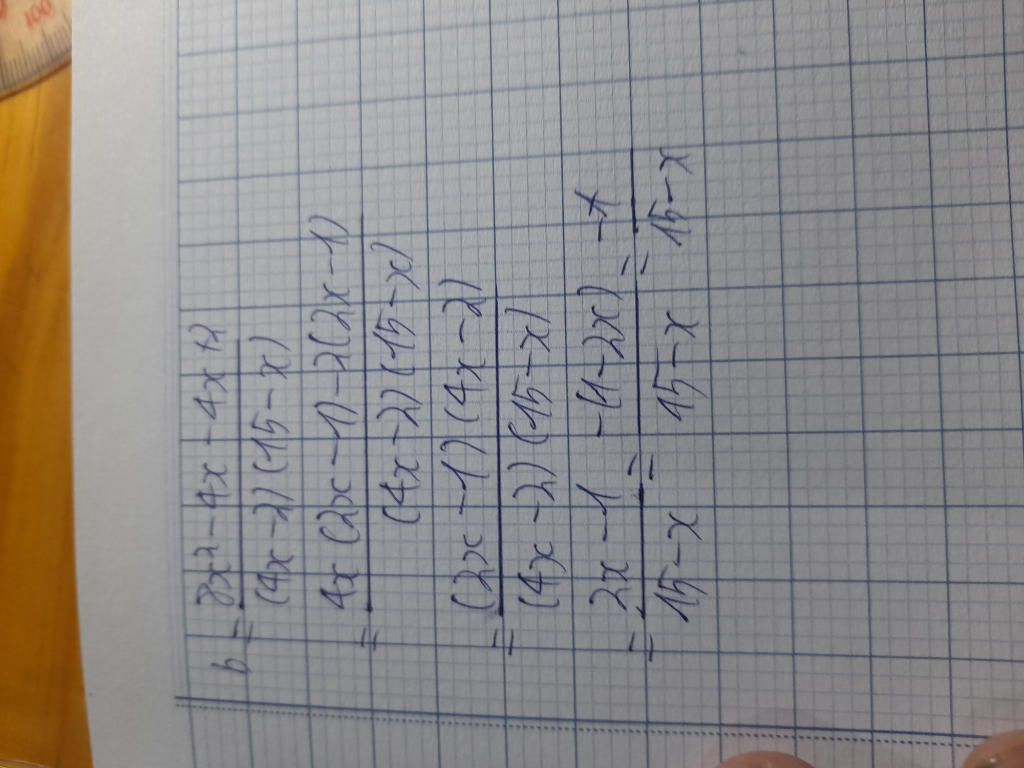 100
b = 8x2 - 4x - 4x + 2 / (4x - 2) (15 - x)
= 4x (2x - 1) - 2(2x - 1) / (4x - 2) (15 - x)
= (2x - 1) (4x - 2) / (4x - 2) (15 - x)
= 2x - 1 / 15 - x = -(1 - 2x) / 15 - x = -1 / 15 - x